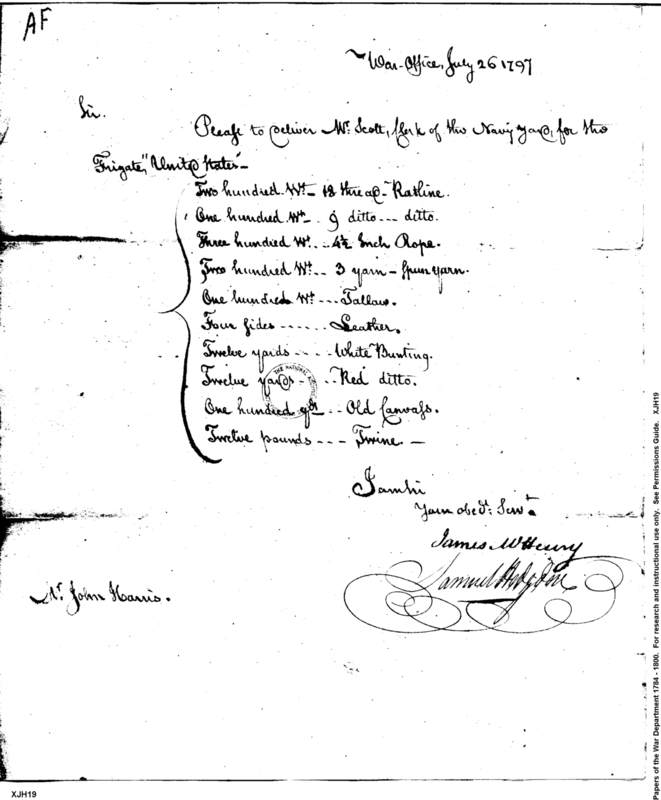 AF
War-Office, July 26 1797
Sir.
Please to deliver Mr. Scott, Clerk of the Navy Yard, for the
Frigate, "United States"—
Two hundred Wt— 18 thread- Ratline.
One hundred Wt- 9 ditto --- ditto.
Three hundred Wt. -- 4½ Inch Rope.
Two hundred Wt-- 3 yarn - Spun yarn.
One hundred Wt --- Tallow.
Four sides ------ Leather.
Twelve yards ---- White Bunting.
Twelve yards - - -- Red ditto.
One hundred yds -- Old Canvass.
Twelve pounds --- Twine. —
I am Sir
Your obedt. Servt.
James McHenry
Samuel Hodgdon
Mr. John Harris.
THE NATIONAL
XJH19
Papers of the War Department 1784 - 1800. For research and instructional use only. See Permissions Guide. XJH19